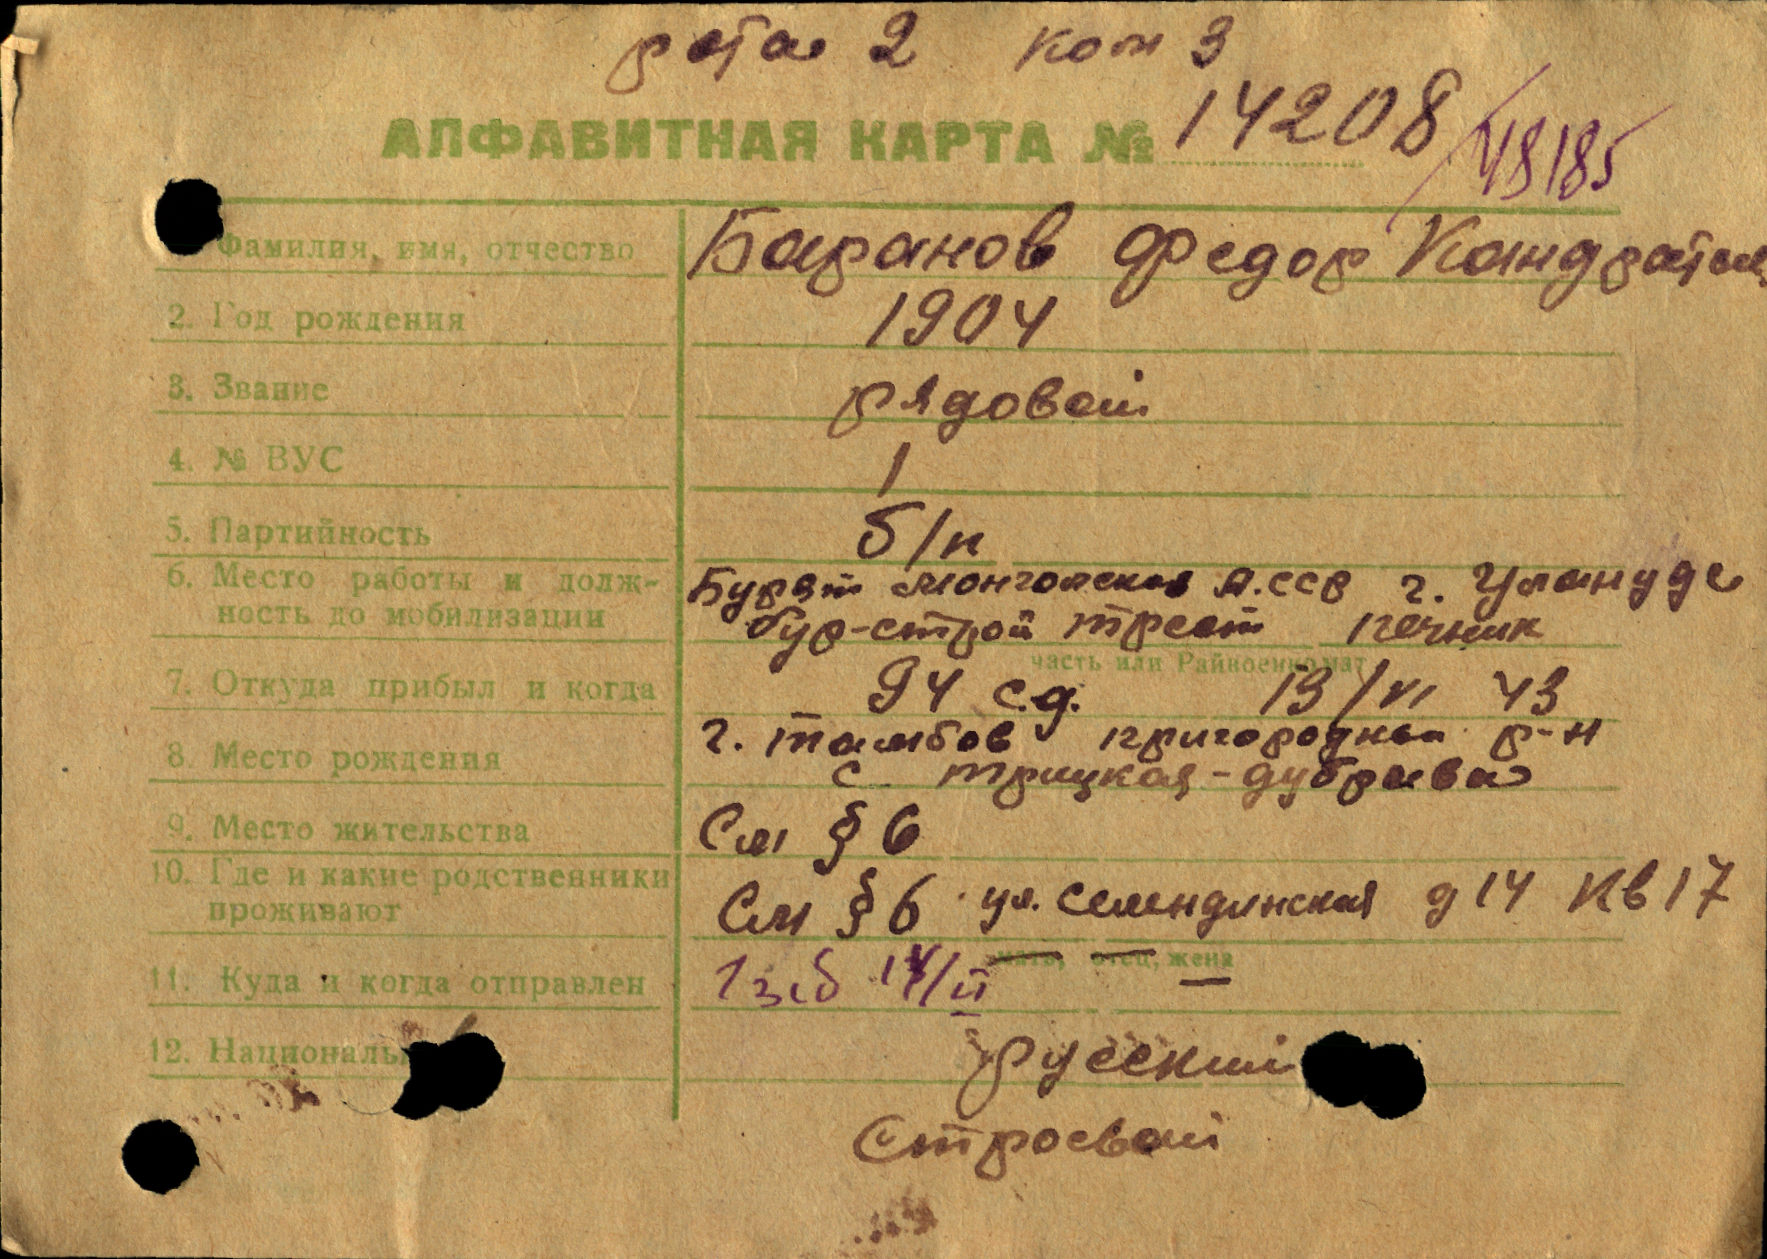 рота 2 ком 3
АЛФАВИТНАЯ КАРТА № 14208/48185
Фамилия, имя, отчество Баранов Федор Кандратьев
2. Год рождения 1904
3. Звание рядовой
4. № ВУС 1
5. Партийность б/п
6. Место работы и долж- Бурят Монгольская А.ССР г. Уланудэ
ность до мобилизации бур-строй трест печник
часть или Райвоенкомат
7. Откуда прибыл и когда 94 с.д. 13/VI 43
8. Место рождения г. Тамбов пригородный р-н
с трицкая-дубрава
9. Место жительства См § 6
10. Где и какие родственники
проживают См § 6 ул. Смендинская д 14 кв 17
мать, отец, жена
11. Куда и когда отправлен 1 зсб 14/II
12. Националь русский
Строевой